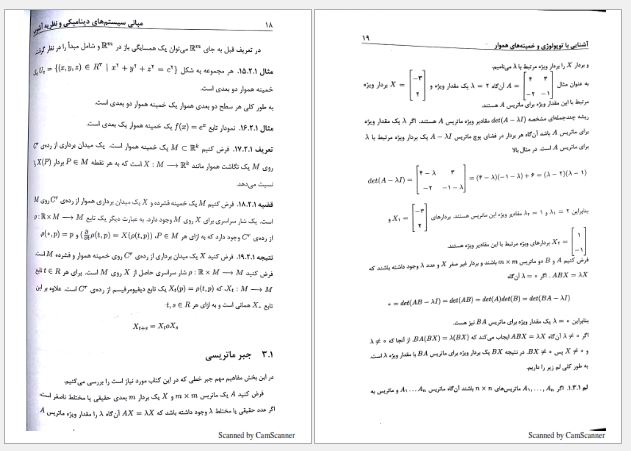 ۱۸ مبانی سیستم‌های دینامیکی و نظریه آشوب
در تعریف قبل به جای R^m می‌توان یک همسایگی باز در R^m و شامل مبدأ را در نظر گرفت.
مثال ۱۵.۲.۱. هر مجموعه به شکل {(x, y, z) ∈ R^۳ | x^۲ + y^۲ + z^۲ = c^۲}
خمینه هموار دو بعدی است.
به طور کلی هر سطح دو بعدی هموار یک خمینه هموار دو بعدی است.
مثال ۱۶.۲.۱. نمودار تابع f(x) = e^x یک خمینه هموار یک بعدی است.
تعریف ۱۷.۲.۱. فرض کنیم M ⊂ R^k یک خمینه هموار است. یک میدان برداری از رده‌ی C^r
روی M یک نگاشت هموار مانند X : M → R^k است که به هر نقطه P ∈ M بردار X(P) را
نسبت می‌دهد.
قضیه ۱۸.۲.۱. فرض کنیم M یک خمینه فشرده و X یک میدان برداری هموار از رده‌ی C^r روی M
است. یک شار سراسری برای X روی M وجود دارد. به عبارت دیگر یک تابع ρ : R × M → M
از رده‌ی C^r وجود دارد که به ازای هر P ∈ M، ρ(۰, p) = p و ∂/∂t ρ(t, p) = X(ρ(t, p))
نتیجه ۱۹.۲.۱. فرض کنید X یک میدان برداری از رده‌ی C^r روی خمینه هموار و فشرده M است
فرض کنید ρ : R × M → M شار سراسری حاصل از X روی M است. برای هر t ∈ R تابع
X_t : M → M، که X_t(p) = ρ(t, p) یک تابع دیفیومرفیسم از رده‌ی C^r است. علاوه بر این
تابع X_۰ همانی است و به ازای هر t, s ∈ R
X_{t+s} = X_t o X_s
۳.۱ جبر ماتریسی
در این بخش مفاهیم مهم جبر خطی که در این کتاب مورد نیاز است را بررسی می‌کنیم.
فرض کنید A یک ماتریس m × m و X یک بردار m بعدی حقیقی یا مختلط ناصفر است.
اگر عدد حقیقی یا مختلط λ وجود داشته باشد که AX = λX آن‌گاه λ را مقدار ویژه ماتریس A
Scanned by CamScanner
آشنایی با توپولوژی و خمینه‌های هموار ۱۹
و بردار X را بردار ویژه مرتبط با λ می‌نامیم.
به عنوان مثال A = [۴ ۳; −۲ −۱] آن‌گاه λ = ۲ یک مقدار ویژه و X = [−۳; ۲] بردار ویژه
مرتبط با این مقدار ویژه برای ماتریس A هستند.
ریشه چندجمله‌ای مشخصه det(A − λI) مقادیر ویژه ماتریس A هستند. اگر λ یک مقدار ویژه
برای ماتریس A باشد آن‌گاه هر بردار در فضای پوچ ماتریس A − λI یک بردار ویژه مرتبط با λ
برای ماتریس A است. در مثال بالا
det(A − λI) = [۴ − λ ۳; −۲ −۱ − λ] = (۴ − λ)(−۱ − λ) + ۶ = (λ − ۲)(λ − ۱)
بنابراین λ_۱ = ۲ و λ_۲ = ۱ مقادیر ویژه این ماتریس هستند. بردارهای X_۱ = [−۳; ۲] و
X_۲ = [۱; −۱] بردارهای ویژه مرتبط با این مقادیر ویژه هستند.
فرض کنیم A و B دو ماتریس m × m باشند و بردار غیر صفر X و عدد λ وجود داشته باشند که
ABX = λX. اگر λ = ۰ آن‌گاه
۰ = det(AB − λI) = det(AB) = det(A)det(B) = det(BA − λI)
بنابراین λ = ۰ یک مقدار ویژه برای ماتریس BA نیز هست.
اگر λ ≠ ۰ آن‌گاه ABX = λX ایجاب می‌کند که BA(BX) = λ(BX). از آنجا که λ ≠ ۰
و X ≠ ۰ پس BX ≠ ۰. در نتیجه BX یک بردار ویژه برای ماتریس BA با مقدار ویژه λ است.
به طور کلی لم زیر را داریم.
لم ۱.۳.۱. اگر A_۱, ..., A_n ماتریس‌های n × n باشند آن‌گاه ماتریس A_۱...A_n و ماتریس به
Scanned by CamScanner